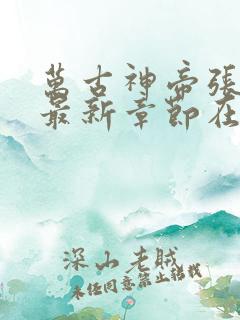 萬古神帝張
最新章節在
深山老賊
未經同意禁止轉載